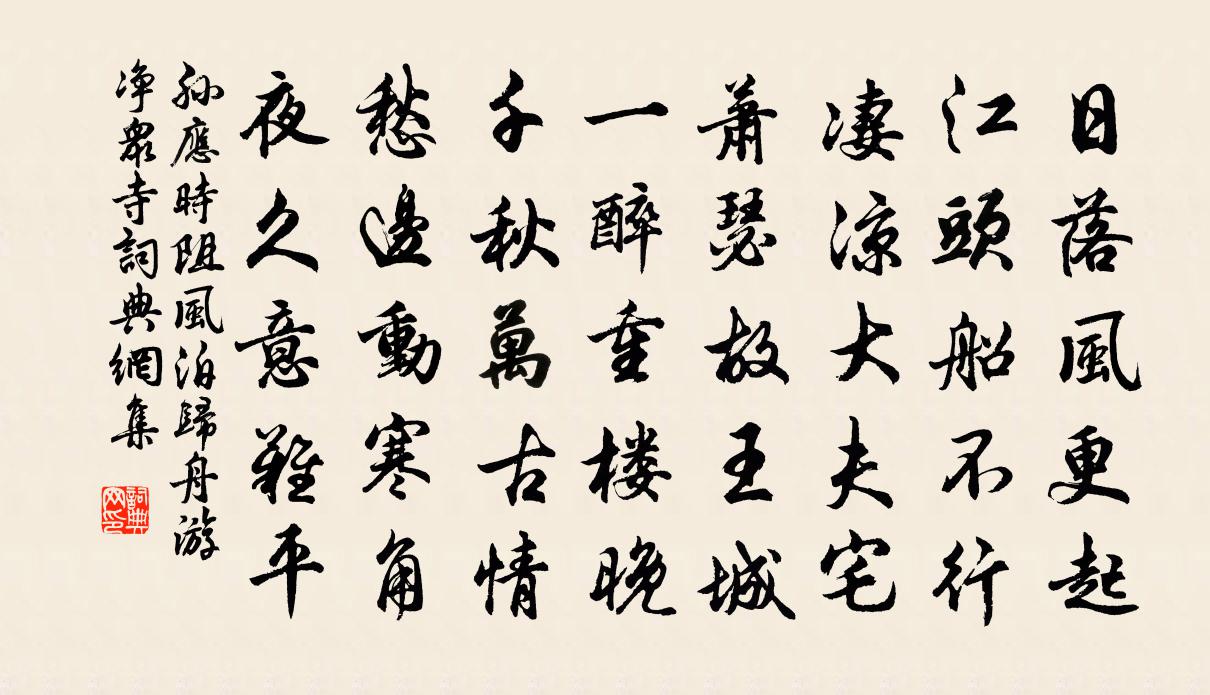 日落風更起
江頭船不行
凄涼大夫宅
蕭瑟故王城
一醉重楼晚
千秋萬古情
愁邊動寒角
夜久意難平
孫應時阻風泊歸舟游
净衆寺詞典網集
詞典网印